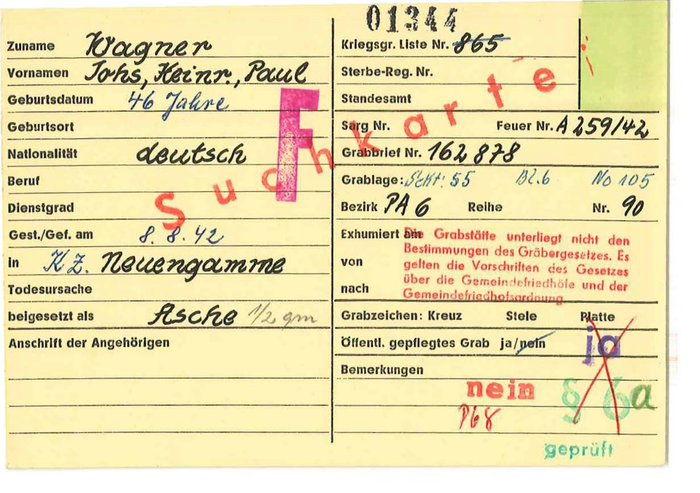 01344
Zuname Wagner
Vornamen Johs, Heinr., Paul
Geburtsdatum 46 Jahre
Geburtsort
Nationalität deutsch
Beruf
Dienstgrad
Gest./Gef. am 8.8.42
in KZ. Neuengamme
Todesursache
beigesetzt als Asche 1/2 qm
Anschrift der Angehörigen
F
Suchkarte
Kriegsgr. Liste Nr. 865
Sterbe-Reg. Nr.
Standesamt
Sarg Nr. Feuer Nr. A 259/42
Grabbrief Nr. 162878
Grablage: Sekt: 55 Bl. 6 No 105
Bezirk PA 6 Reihe Nr. 90
Exhumiert am
von
nach
Die Grabstätte unterliegt nicht den
Bestimmungen des Gräbergesetzes. Es
gelten die Vorschriften des Gesetzes
über die Gemeindefriedhöfe und der
Gemeindefriedhofsordnung.
Grabzeichen: Kreuz Stele Platte
Öffentl. gepflegtes Grab ja/nein ja
Bemerkungen
nein § 6a
P68
geprüft